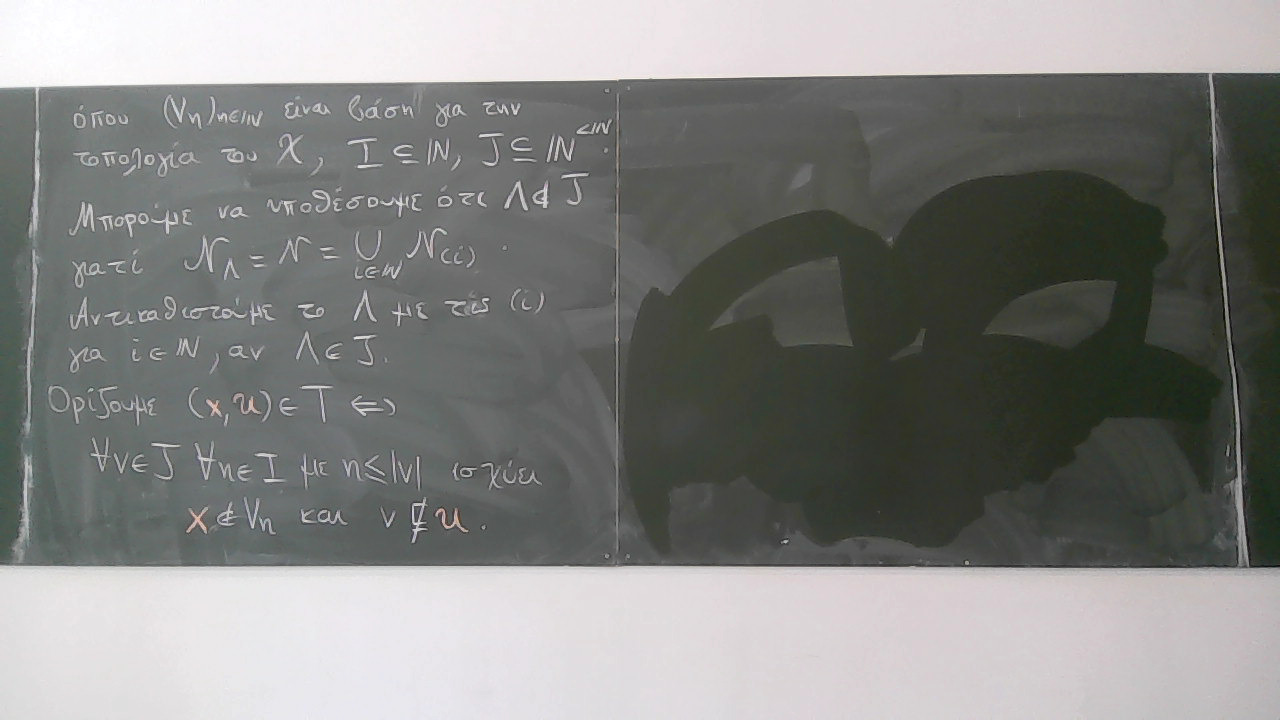 όπου (Vη)η∈ℕ είναι βάση για την
τοπολογία του X, I ⊆ ℕ, J ⊆ ℕ^<ℕ.
Μπορούμε να υποθέσουμε ότι Λ∉J
γιατί 𝒩_Λ = 𝒩 = ∪_{i∈ℕ} 𝒩_(i).
Αντικαθιστούμε το Λ με τις (i)
για i∈ℕ, αν Λ∈J.
Ορίζουμε (x,u)∈T ⇔
∀v∈J ∀n∈I με n≤|v| ισχύει
x∉Vn και v⋢u.